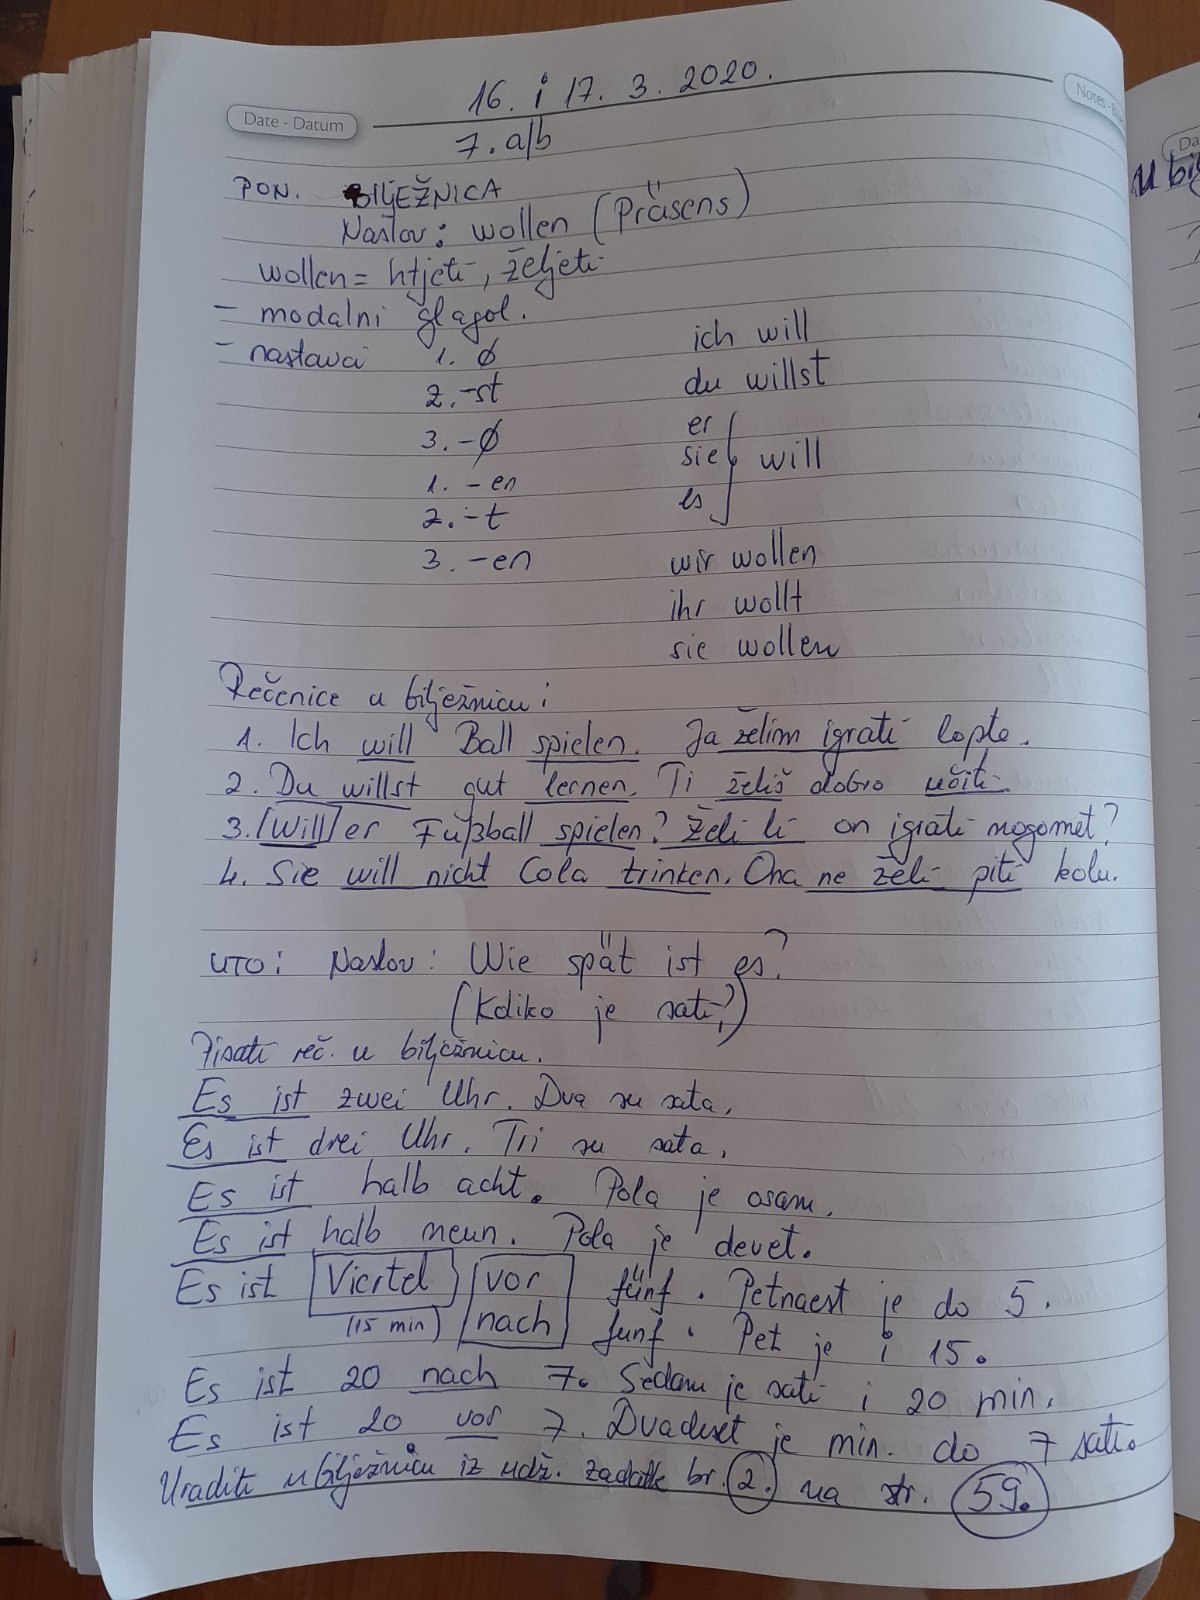 16. i 17. 3. 2020.
Date - Datum
Notes - B
7. a/b
PON. BILJEŽNICA
Naslov: wollen (Präsens)
wollen = htjeti, željeti
- modalni glagol.
- nastavci 1. ø ich will
2. -st du willst
3. -ø er
sie will
es
1. -en
2. -t
3. -en wir wollen
ihr wollt
sie wollen
Rečenice u bilježnicu:
1. Ich will Ball spielen. Ja želim igrati lopte.
2. Du willst gut lernen. Ti želiš dobro učiti.
3. [Will] er Fußball spielen? Želi li on igrati nogomet?
4. Sie will nicht Cola trinken. Ona ne želi piti kolu.
UTO: Naslov: Wie spät ist es?
(Koliko je sati?)
Pisati reč. u bilježnicu.
Es ist zwei Uhr. Dva su sata.
Es ist drei Uhr. Tri su sata.
Es ist halb acht. Pola je osam.
Es ist halb neun. Pola je devet.
Es ist Viertel vor fünf. Petnaest je do 5.
(15 min) nach funf. Pet je i 15.
Es ist 20 nach 7. Sedam je sati i 20 min.
Es ist 20 vor 7. Dvadeset je min. do 7 sati.
Uradite u bilježnicu iz udž. zadatk br. 2. na str. 59.
Da
u bilj